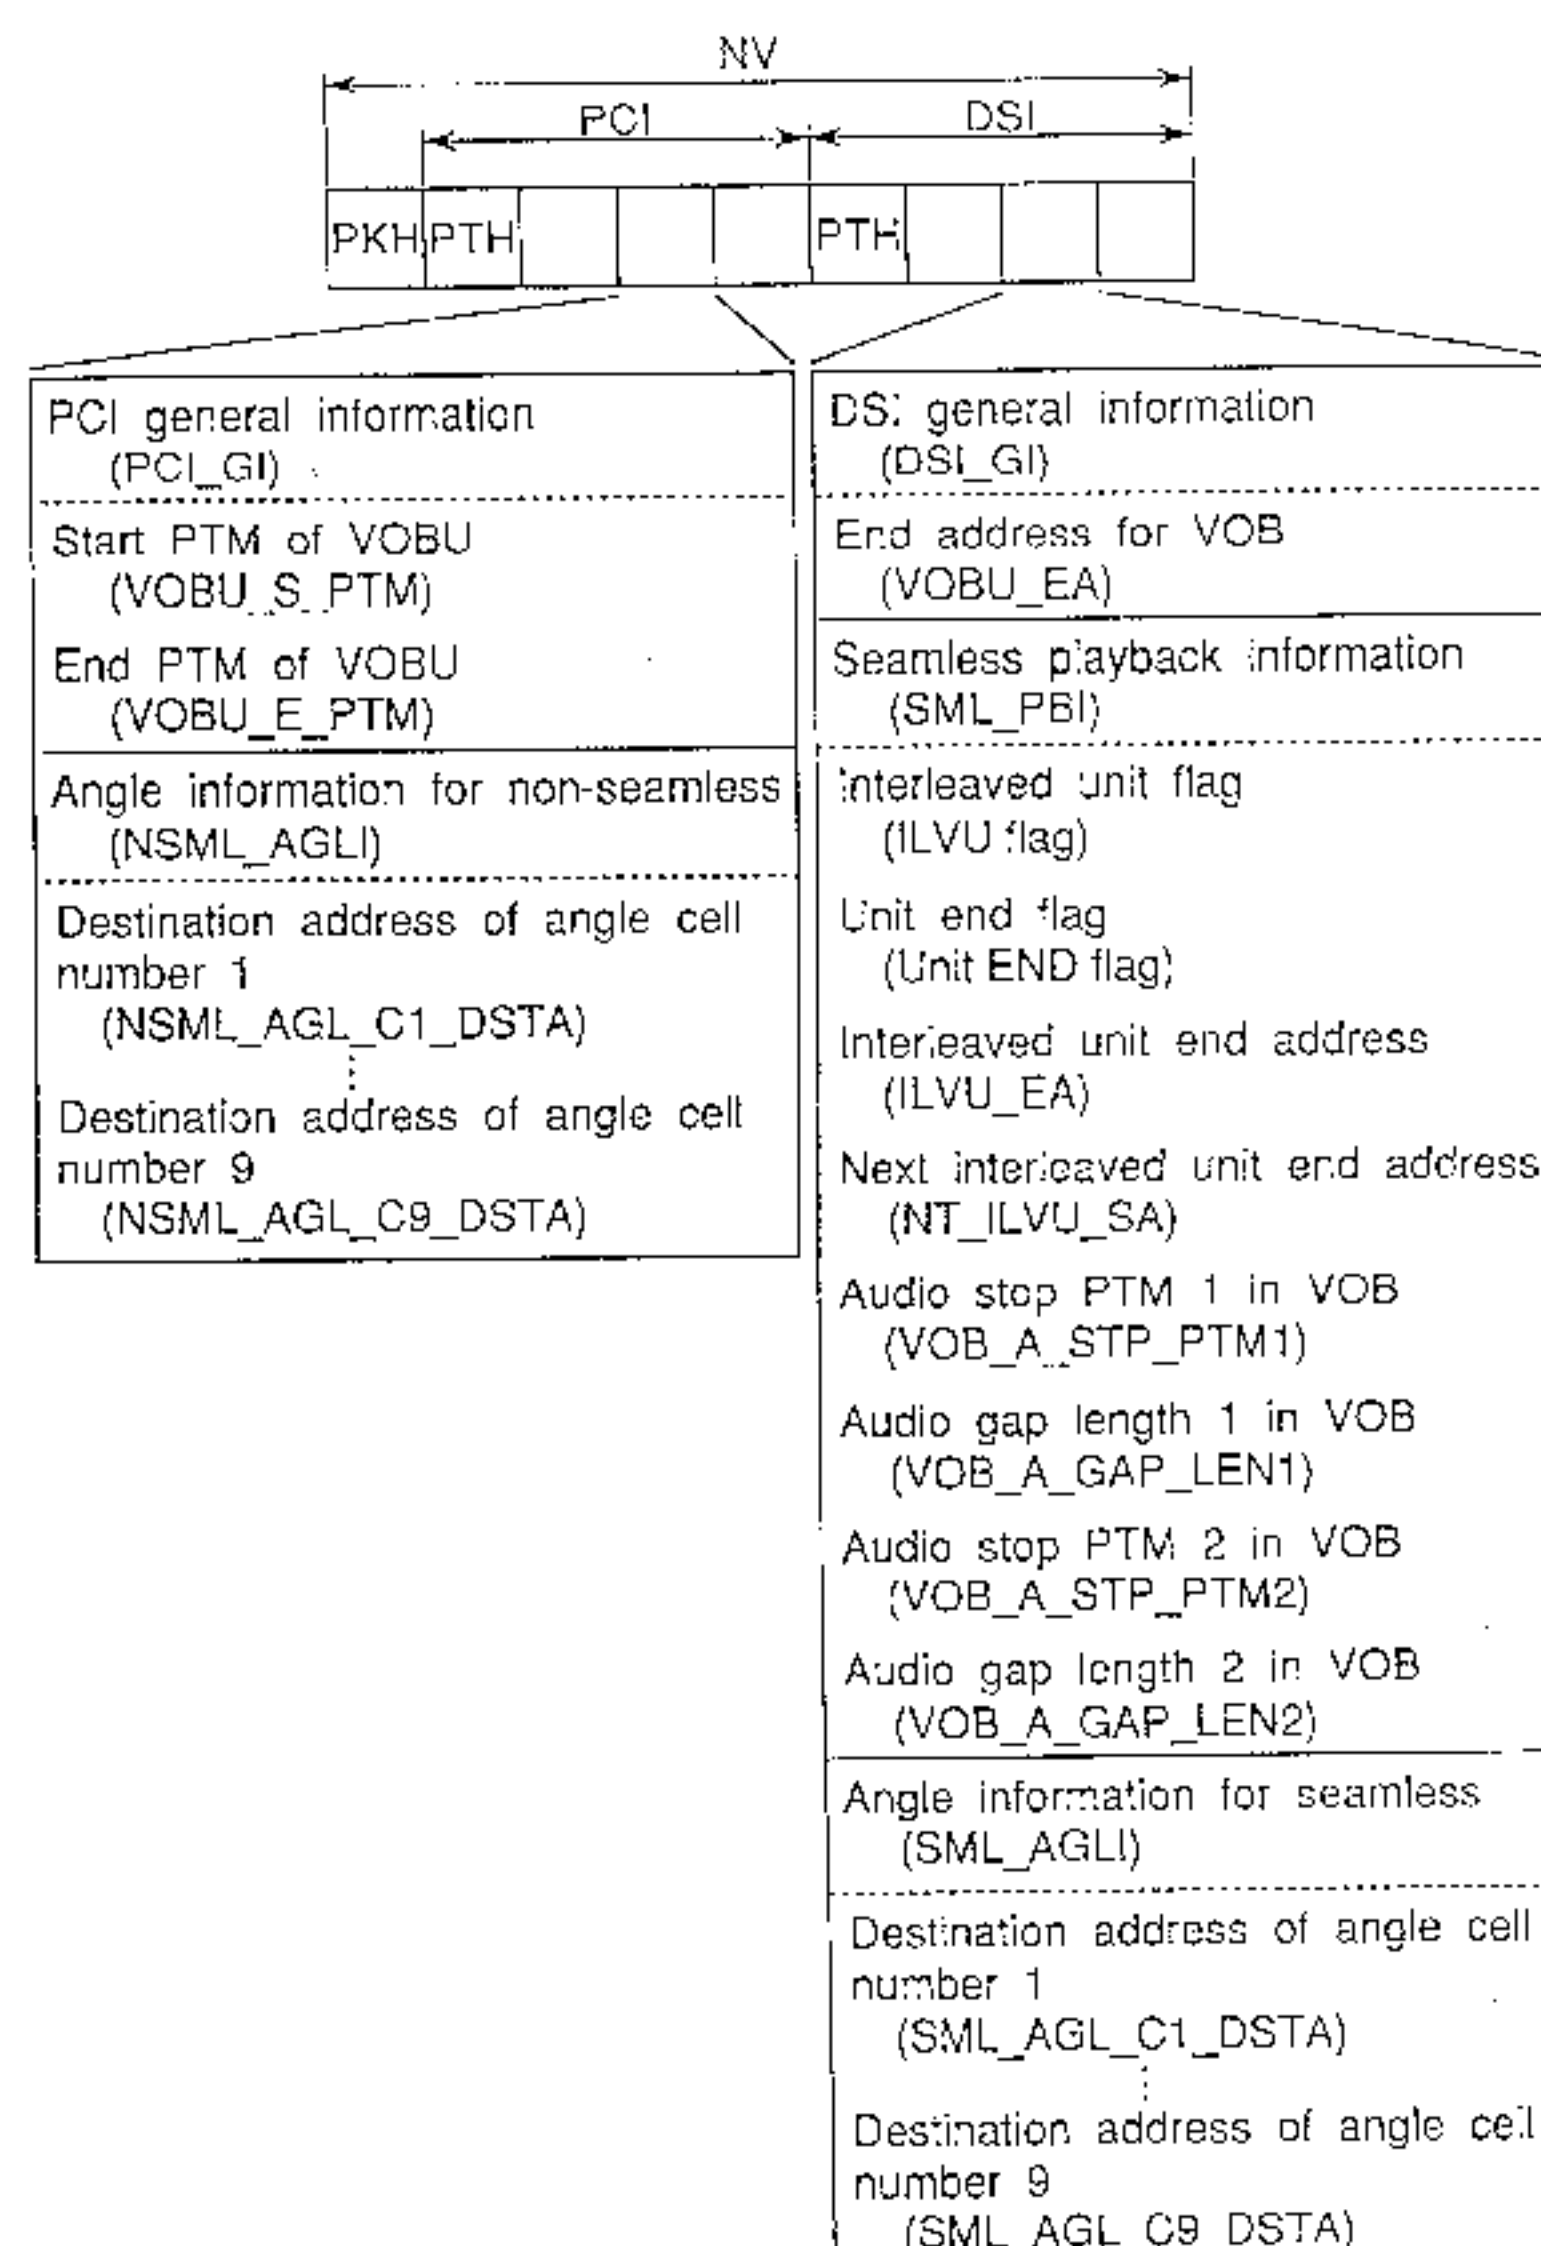 NV
PCI
DSI
PKH
PTH
PTH
PCI general information
(PCI_GI)
Start PTM of VOBU
(VOBU_S_PTM)
End PTM of VOBU
(VOBU_E_PTM)
Angle information for non-seamless
(NSML_AGLI)
Destination address of angle cell
number 1
(NSML_AGL_C1_DSTA)
Destination address of angle cell
number 9
(NSML_AGL_C9_DSTA)
DSI general information
(DSI_GI)
End address for VOB
(VOBU_EA)
Seamless playback information
(SML_PBI)
Interleaved unit flag
(ILVU flag)
Unit end flag
(Unit END flag)
Interleaved unit end address
(ILVU_EA)
Next interleaved unit end address
(NT_ILVU_SA)
Audio stop PTM 1 in VOB
(VOB_A_STP_PTM1)
Audio gap length 1 in VOB
(VOB_A_GAP_LEN1)
Audio stop PTM 2 in VOB
(VOB_A_STP_PTM2)
Audio gap length 2 in VOB
(VOB_A_GAP_LEN2)
Angle information for seamless
(SML_AGLI)
Destination address of angle cell
number 1
(SML_AGL_C1_DSTA)
Destination address of angle cell
number 9
(SML_AGL_C9_DSTA)